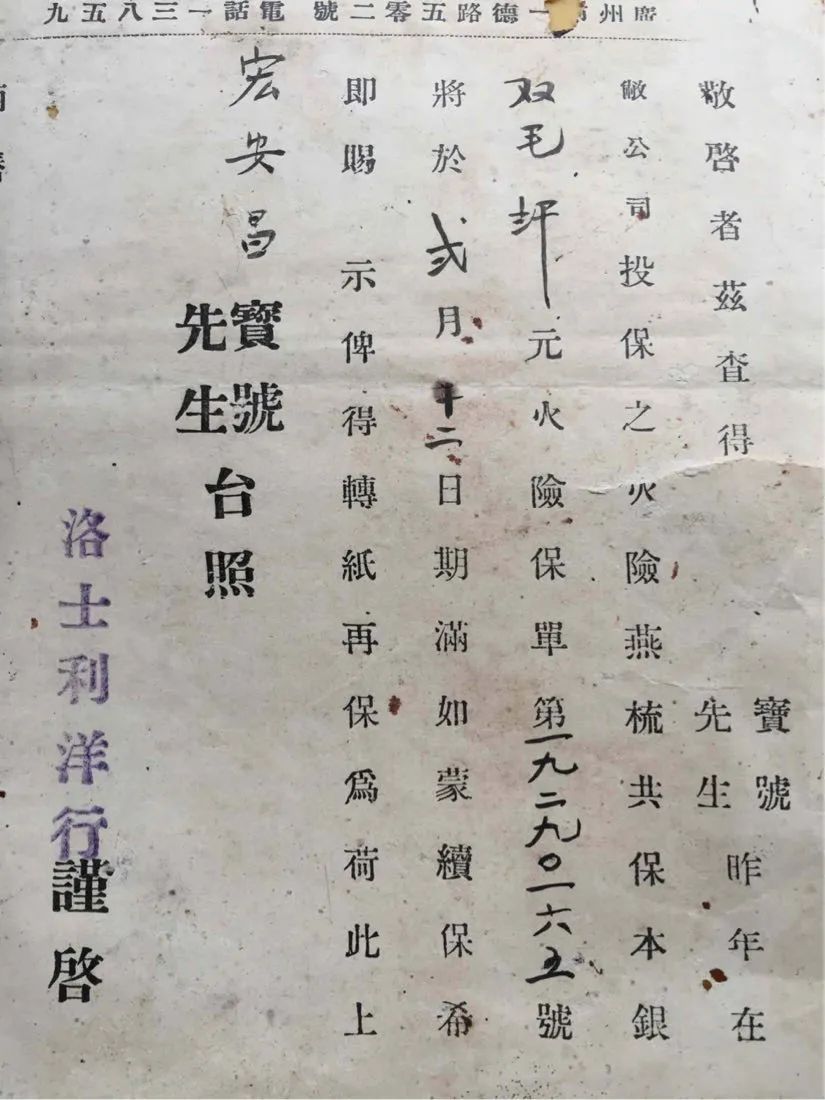 廣州市一德路五零二號 電話一三八五九
敬啓者茲查得 寶號先生 昨年在
敝公司投保之火險燕梳共保本銀
双毛 元火險保單第一九二九〇一六五號
將於弍月十二日期滿如蒙續保希
即賜 示俾得轉紙再保爲荷此上
宏安昌 寶號先生 台照
洛士利洋行謹啓